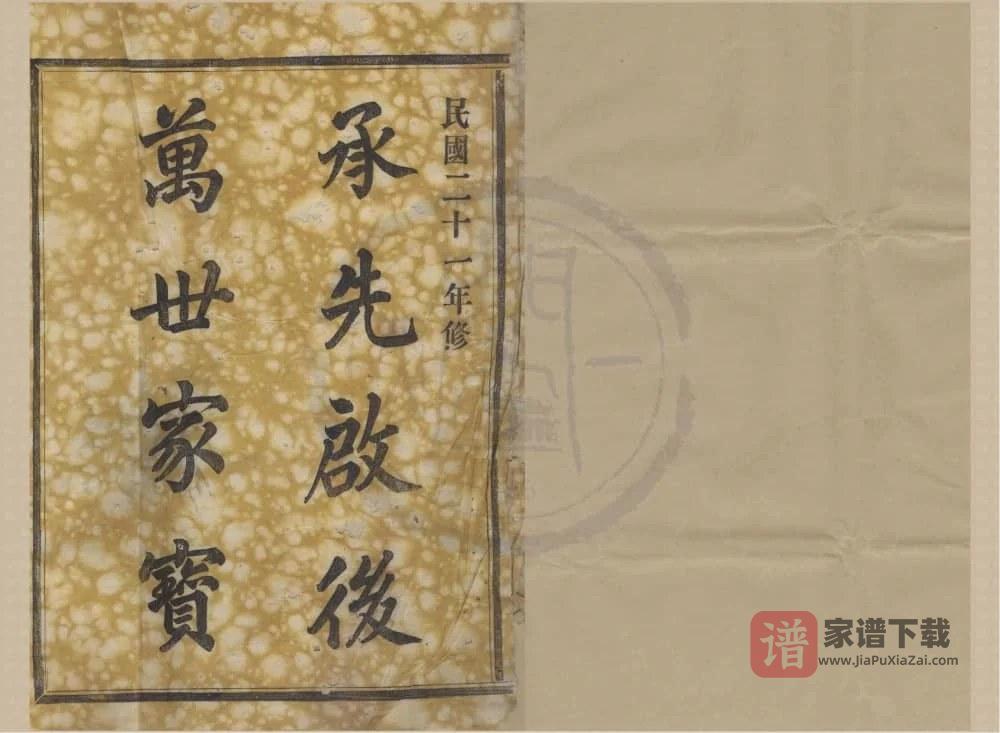 民國二十一年修
承先啟後
萬世家寶
谱
家谱下载
www.JiaPuXiaZai.com